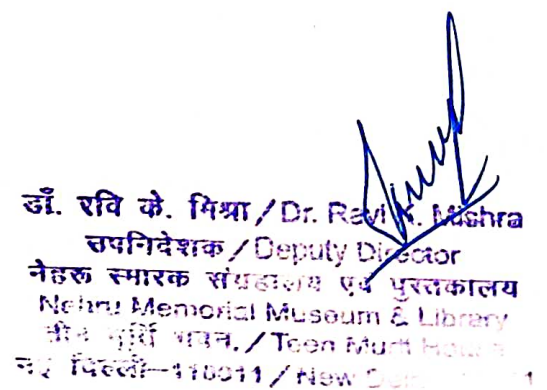 डॉ. रवि के. मिश्रा / Dr. Ravi K. Mishra
उपनिदेशक / Deputy Director
नेहरू स्मारक संग्रहालय एवं पुस्तकालय
Nehru Memorial Museum & Library
तीन मूर्ति भवन, / Teen Murti House
नई दिल्ली-110011 / New